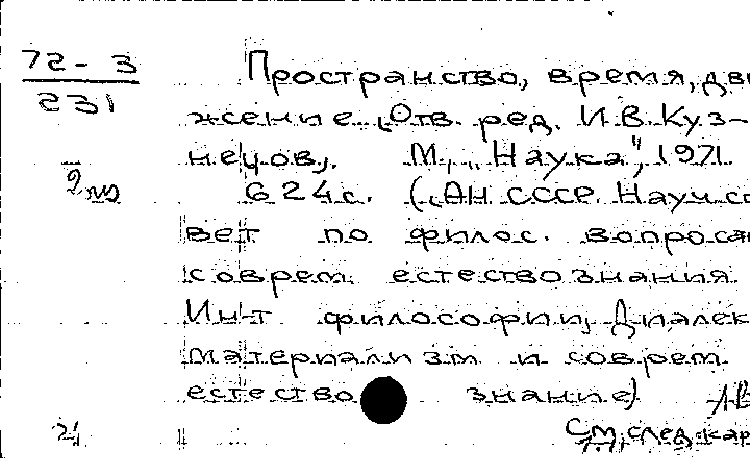 72-3
231
Пространство, время, дви
жение. (Отв. ред. И.В. Куз-
нецов). М., "Наука", 1971.
624 с. (АН СССР. Науч. со
вет по филос. вопросам
соврем. естествознания.
Ин-т философии, Диалек
материализм и соврем.
естество знание)
См. след. кар